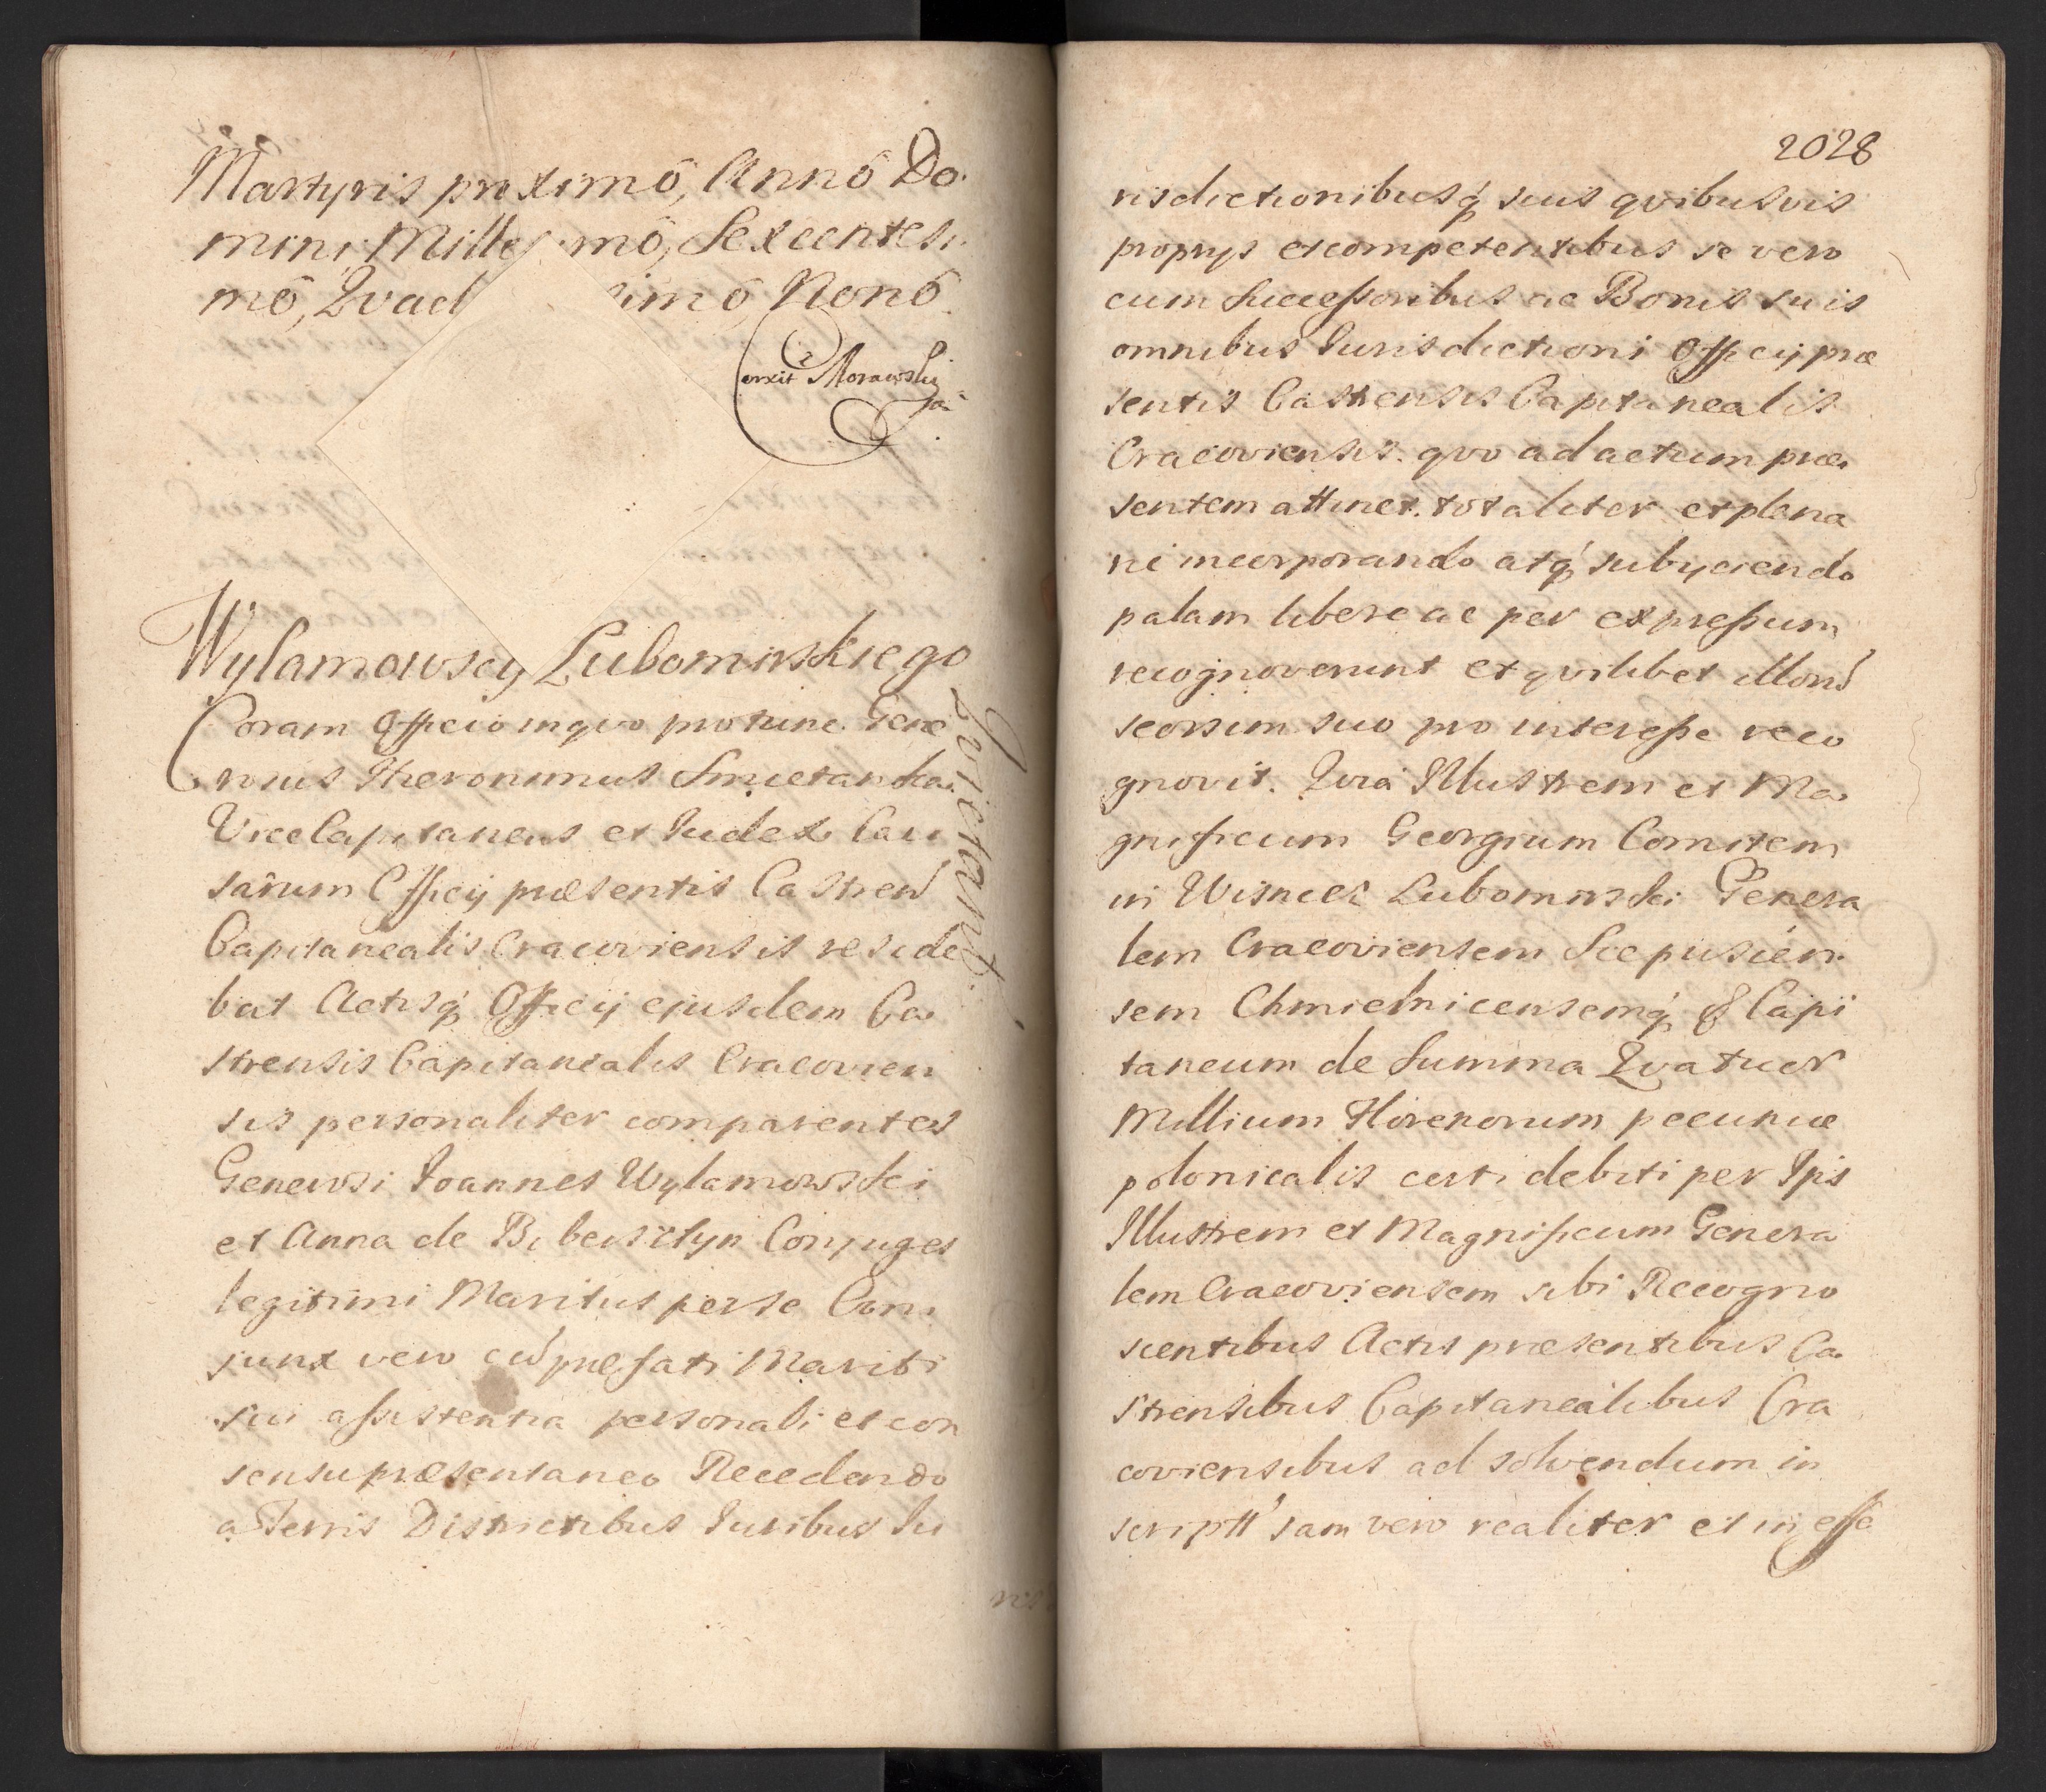 Martyris proximô, Annô Do
mini Mille mô, Sexcentesi
mô, Qvad simô Nonô
Corexit Morawsky
Wylamowscy Lubomirskiego
Qvietant
Coram Officio inqvo protunc Gene
rosus Hieronimus Smietanka
ViceCapitaneus et Iudex Cau
sarum Officij præsentis Castren
Capitanealis Cracoviensis reside
bat Actisq́ Officij ejusdem Ca
strensis Capitanealis Cracovien
sis personaliter comparentes
Generosi Joannes Wylamowski
et Anna de Bibersztyn Conjuges
legitimi Maritus per se Con
junx vero præfati Mariti
sui assistentia personali et con
sensu præsentaneo Recedendo
a Terris Districtibus Iuribus Iu
ris
2028
risdictionibusq́ suis qvibusvis
proprys et competentibus se vero
cum Successoribus ac Bonis suis
omnibus Iurisdictioni Officij præ
sentis Castrensis Capitanealis
Cracoviensis. qvo ad actum præ
sentem attinet. totaliter et plena
rie incorporando atq́ subyciendo
palam libere ac per expressum
recognoverunt et qvilibet illorú
seorsim suo pro interesse reco
gnovit. Qvia Illustrem et Ma
gnificum Georgium Comitem
in Wisnicz Lubomirski Genera
lem Cracoviensem Scepusien
sem Chmielnicensemq́ & Capi
taneum de Summa Qvatuor
Millium Florenorum pecuniæ
polonicalis certi debiti per Ips
Illustrem et Magnificum Genera
lem Cracoviensem sibi Recogno
scentibus Actis præsentibus Ca
strensibus Capitanealibus Cra
coviensibus ad solvendum in
scriptt' jam vero realiter et in effe